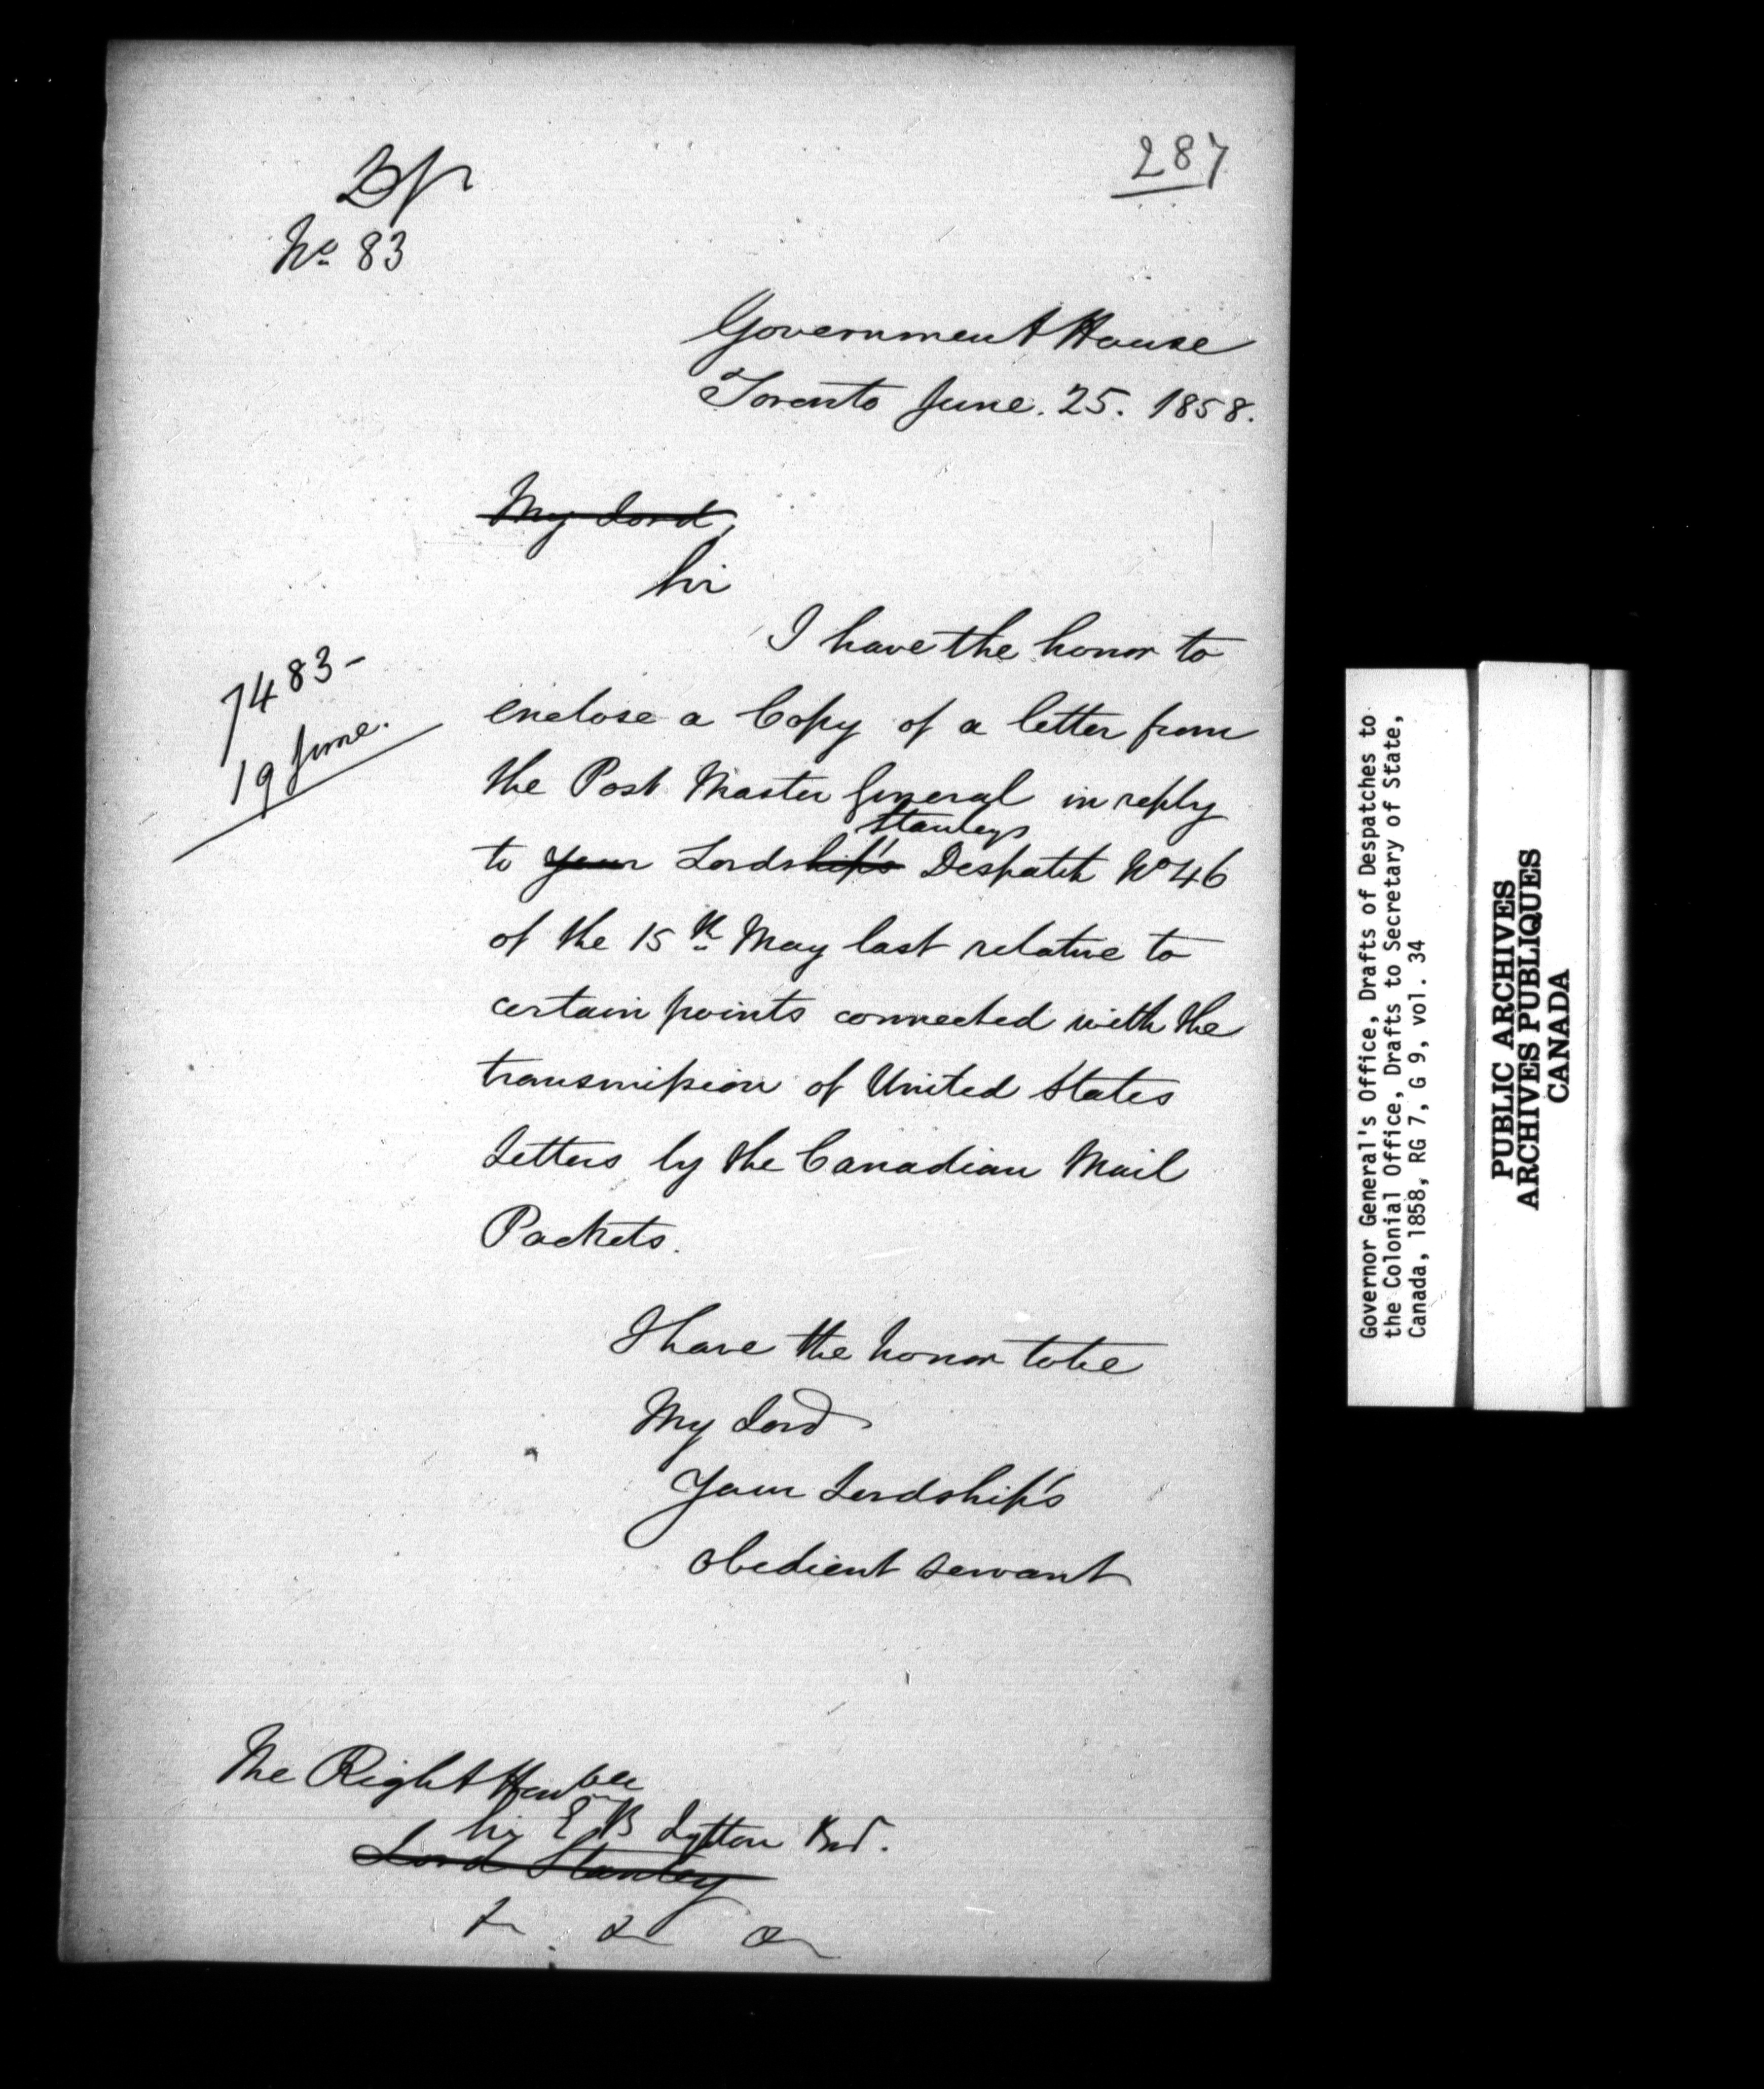 287
Df
No. 83
Government House
Toronto June. 25. 1858.
My Lord,
Sir
I have the honor to
7483-
19 June.
enclose a Copy of a letter from
the Post Master General in reply
Stanleys
to your Lordship's Despatch No 46
of the 15th May last relative to
certain points connected with the
transmission of United States
Letters by the Canadian Mail
Packets.
I have the honor to be
My Lord
Your Lordship's
obedient servant
The Right Honble
Sir E B Lytton Bart.
Lord Stanley
Governor General's Office, Drafts of Despatches to
the Colonial Office, Drafts to Secretary of State,
Canada, 1858, RG 7, G 9, vol. 34
PUBLIC ARCHIVES
ARCHIVES PUBLIQUES
CANADA